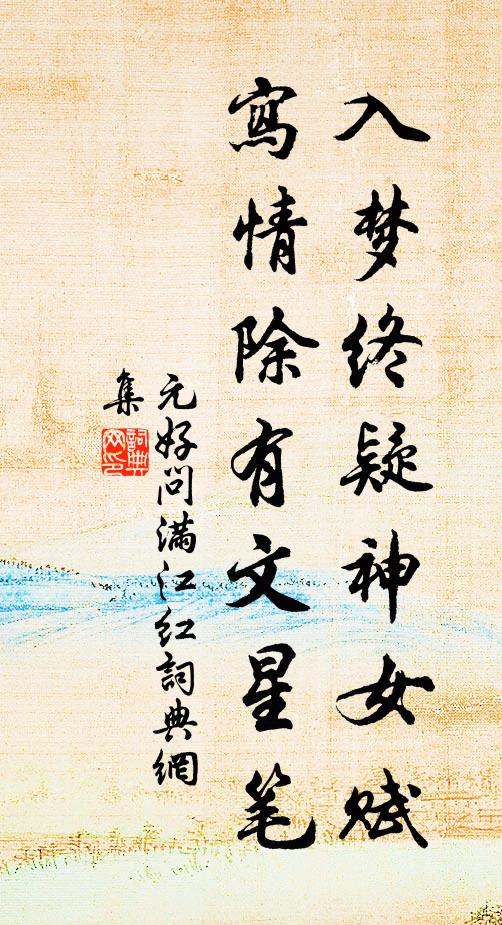 入梦终疑神女赋
寫情除有文星笔
元好问满江红詞典網
集
詞典
网印